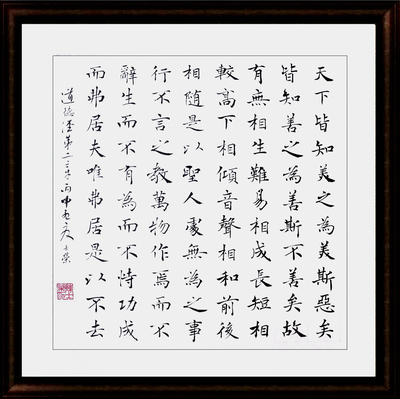 天下皆知美之為美斯惡矣
皆知善之為善斯不善矣故
有無相生難易相成長短相
較高下相傾音聲相和前後
相隨是以聖人處無為之事
行不言之教萬物作焉而不
辭生而不有為而不恃功成
而弗居夫唯弗居是以不去
道德經第二章丙申